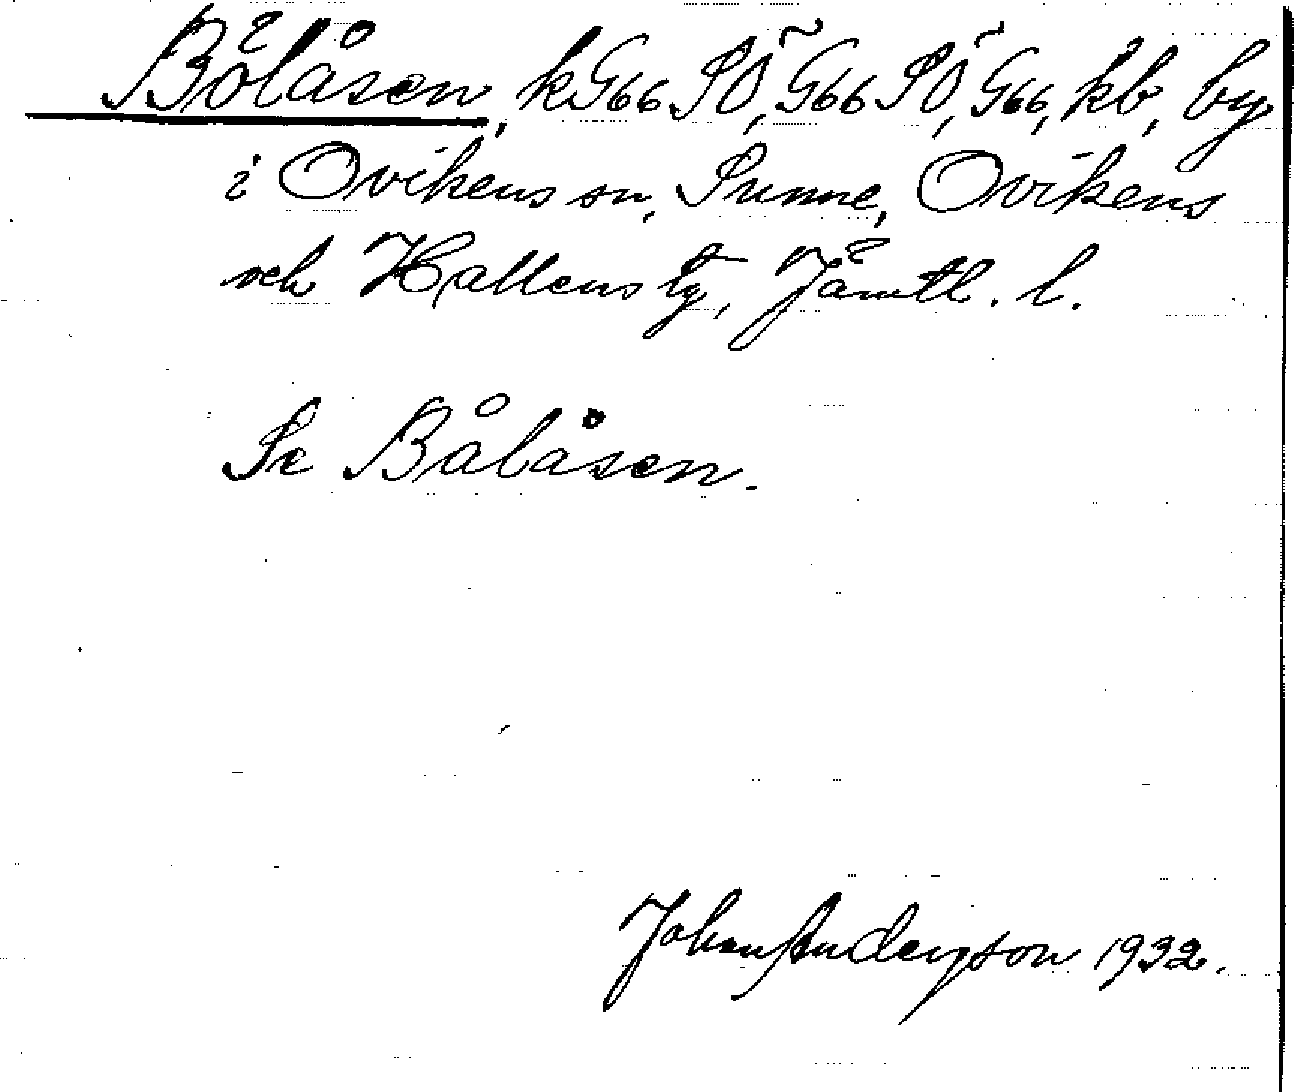 Bölåsen, kG66 SO, G66 SO, G66, kb, by
i Ovikens sn, Sunne, Ovikens
och Hallens tg, Jämtl. l.
Se Bålåsen.
Johan Anderzson 1932.